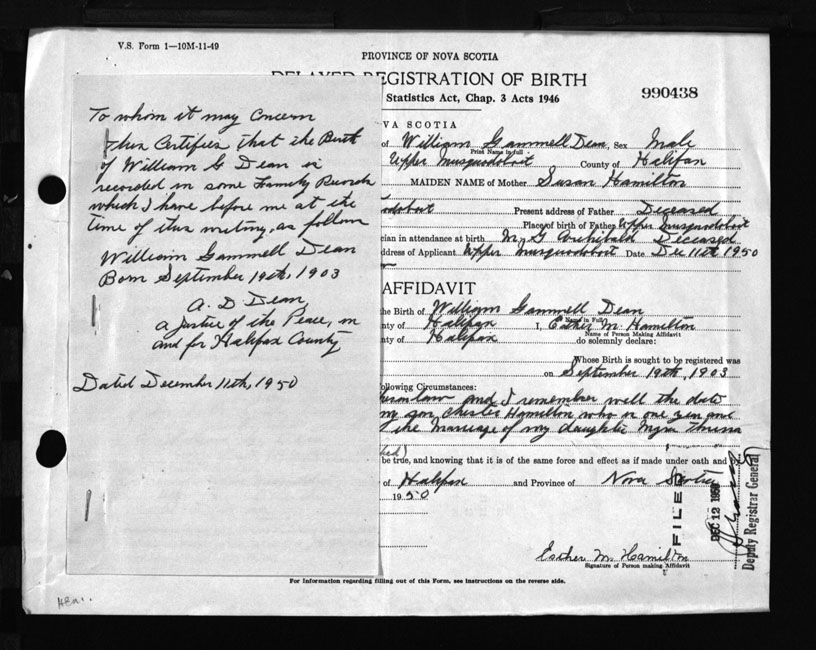 V.S. Form 1—10M-11-49
PROVINCE OF NOVA SCOTIA
DELAYED REGISTRATION OF BIRTH
Statistics Act, Chap. 3 Acts 1946
990438
To whom it may Concern
This Certifies that the Birth
of William G Dean is
recorded in some Family Records
which I have before me at the
time of this writing, as follow
William Gammell Dean
Born September 19th, 1903
A. D Dean,
a Justice of the Peace, in
and for Halifax County
Dated December 11th, 1950
VA SCOTIA
of William Gammell Dean, Sex Male
Print Name in full
Upper Musquodoboit County of Halifax
MAIDEN NAME of Mother Susan Hamilton
doboit Present address of Father Deceased
Place of birth of Father Upper Musquodoboit
cian in attendance at birth M. G Archibald Deceased
ddress of Applicant Upper Musquodoboit Date Dec 11th 1950
AFFIDAVIT
the Birth of William Gammell Dean
Name in Full
nty of Halifax I, Esther M. Hamilton
Name of Person Making Affidavit
nty of Halifax do solemnly declare:
Whose Birth is sought to be registered was
on September 19th, 1903
ollowing Circumstances:
and I remember well the date
my son, Chester Hamilton who is one year and
the Marriage of my daughter Myra
be true, and knowing that it is of the same force and effect as if made under oath and
of Halifax and Province of Nova Scotia
1950
FILED
DEC 12 1950
Deputy Registrar General
Esther M. Hamilton
Signature of Person making Affidavit
For Information regarding filling out of this Form, see Instructions on the reverse side.